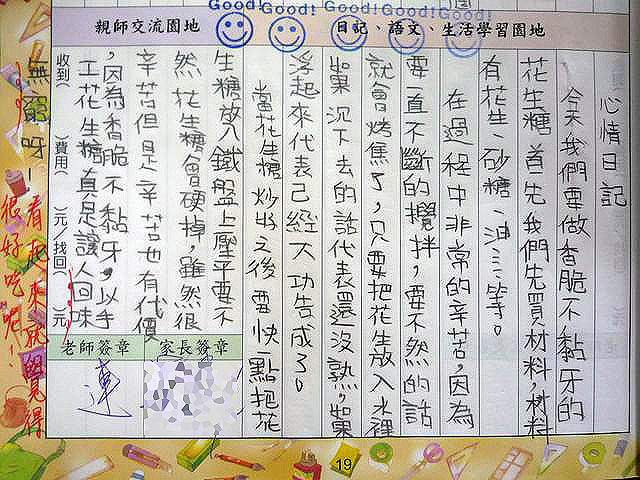 Good! Good! Good! Good! Good!
日記、語文、生活學習園地
親師交流園地
心情日記
今天我們要做香脆不黏牙的
花生糖,首先我們先買材料,材料
有花生、砂糖、油…等。
在過程中非常的辛苦,因為
要一直不斷的攪拌,要不然的話
就會烤焦了,只要把花生放入水裡
如果沉下去的話代表還沒熟,如果
浮起來代表已經大功告成了。
當花生糖炒好之後要快一點把花
生糖放入鐵盤上壓平要不
然花生糖會硬掉,雖然很
辛苦但是辛苦也有代價
,因為香脆不黏牙,以手
工花生糖真是讓人回味
無窮呀!
收到( )費用( )元/找回( )元
家長簽章
老師簽章
連
看起來就覺得
很好吃呢!
19